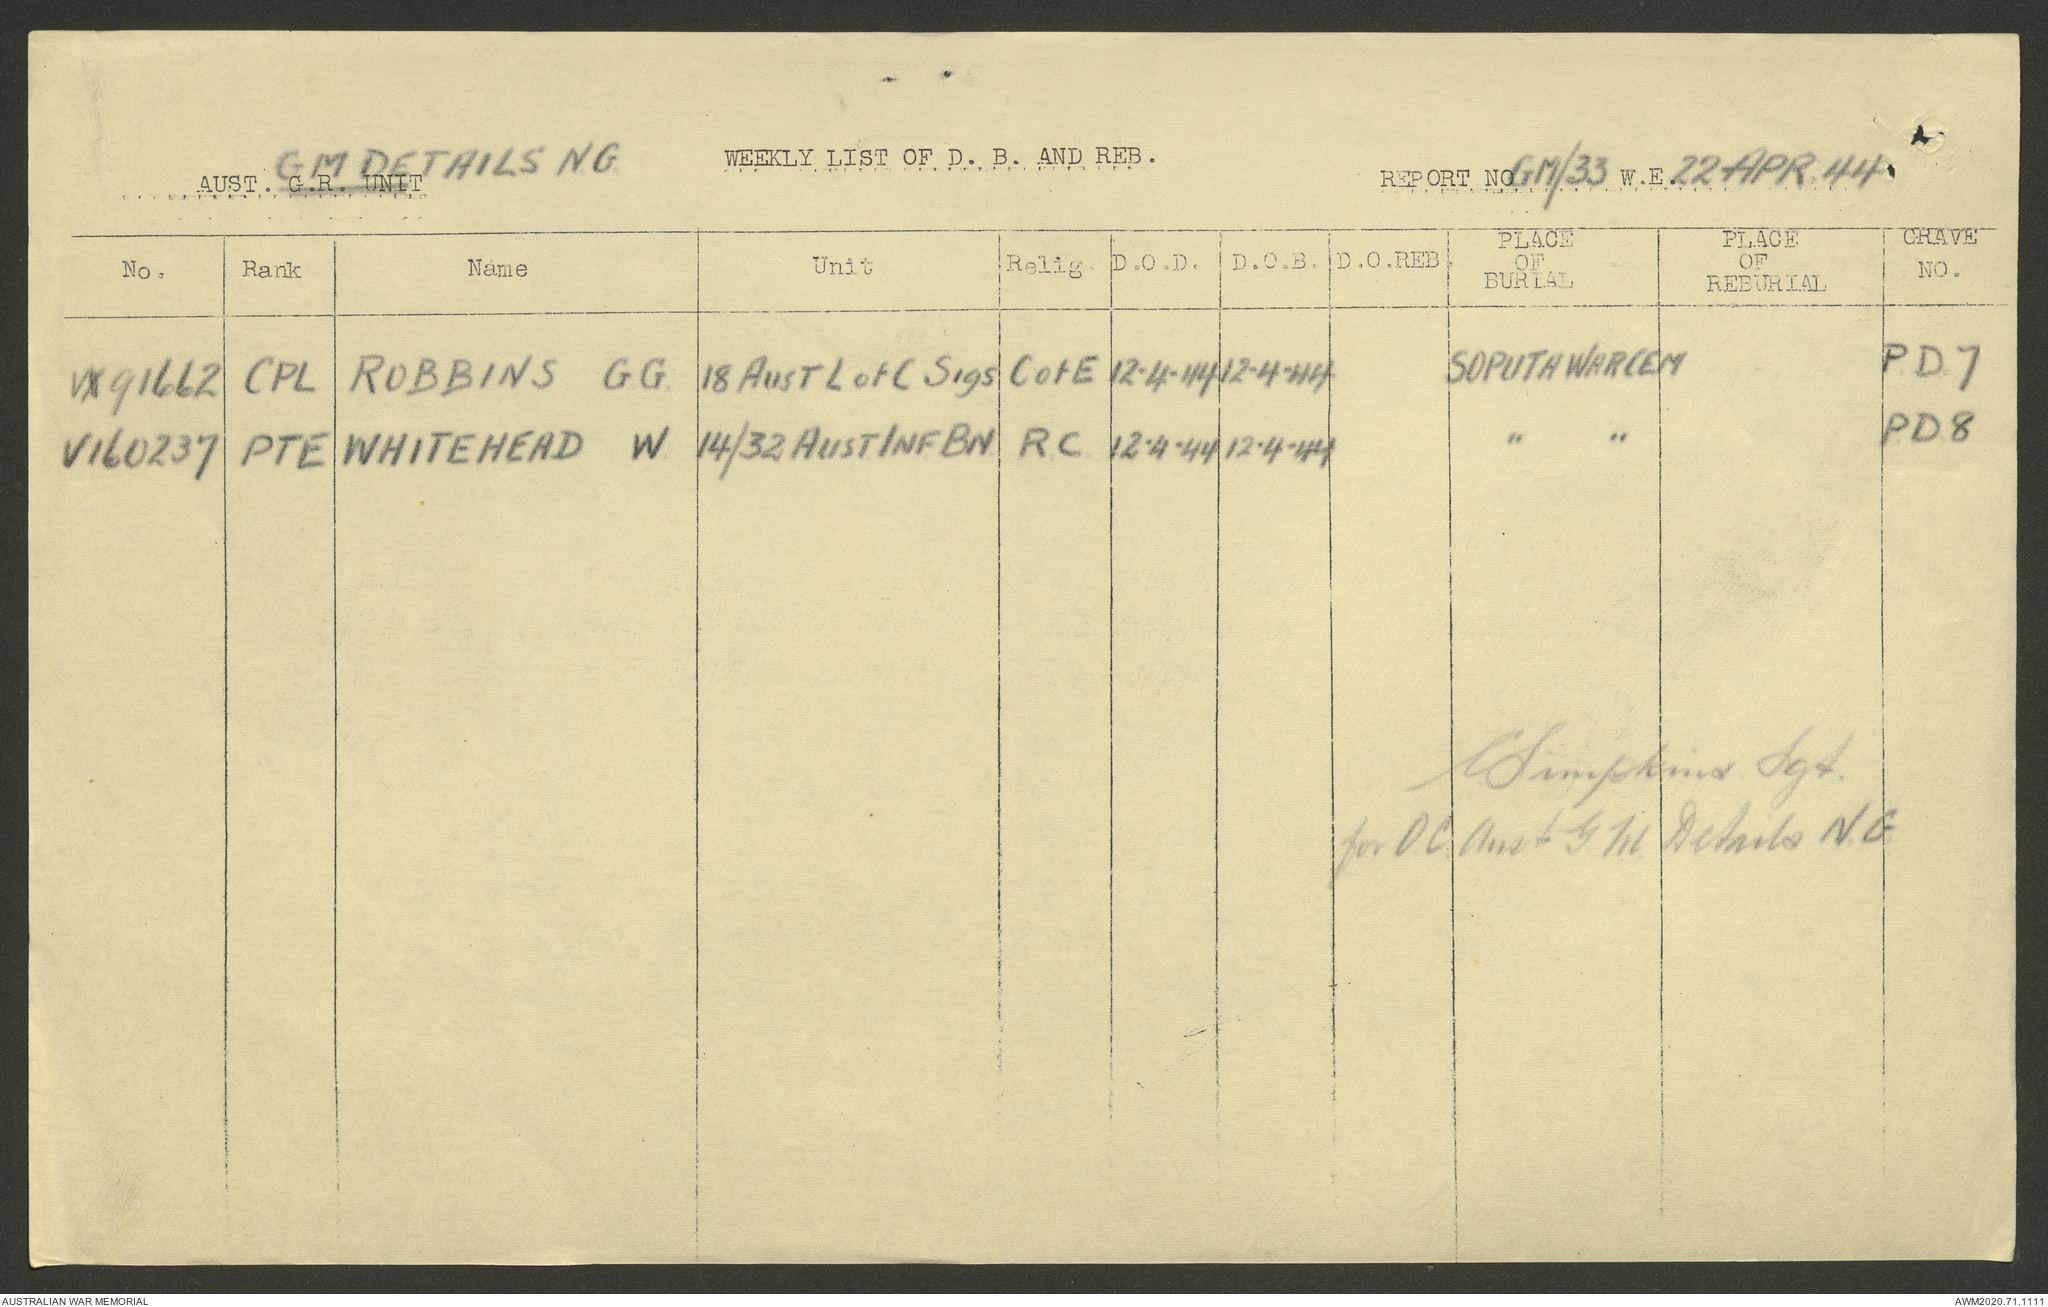 GM DETAILS NG
WEEKLY LIST OF D. B. AND REB.
AUST. G.R. UNIT
REPORT NO GM/33 W.E. 22 APR. 44
No. Rank Name Unit Relig. D.O.D. D.O.B. D.O.REB. PLACE OF BURIAL PLACE OF REBURIAL GRAVE NO.
VX91662 CPL ROBBINS GG. 18 AUST L of C Sigs C of E 12-4-44 12-4-44 SOPUTA WAR CEM P.D.7
V160237 PTE WHITEHEAD W. 14/32 AUST INF BN R.C. 12-4-44 12-4-44 " " P.D 8
C Simpkins Sgt.
for O C. Aust G M. Details N.G.
AUSTRALIAN WAR MEMORIAL
AWM2020.71.1111